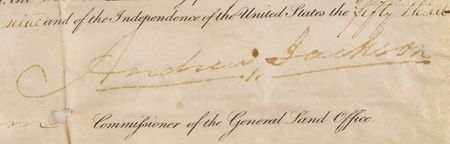 nine and of the Independence of the United States the fifty third
Andrew Jackson
Commissioner of the General Land Office